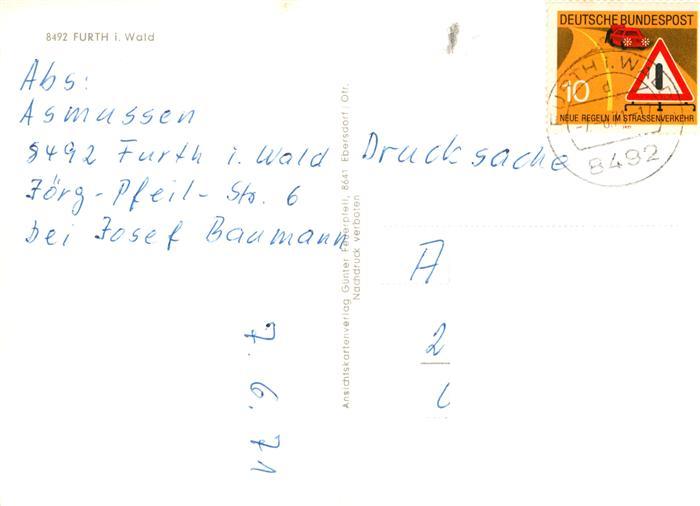 8492 FURTH i. Wald
Abs:
Asmussen
8492 Furth i. Wald
Jörg-Pfeil-Str. 6
bei Josef Baumann
Drucksache
DEUTSCHE BUNDESPOST
10
NEUE REGELN IM STRASSENVERKEHR
1971
8492
Ansichtskartenverlag Günter Federpfeil, 8641 Ebersdorf/Ofr.
Nachdruck verboten
A
2
7. 6. 71